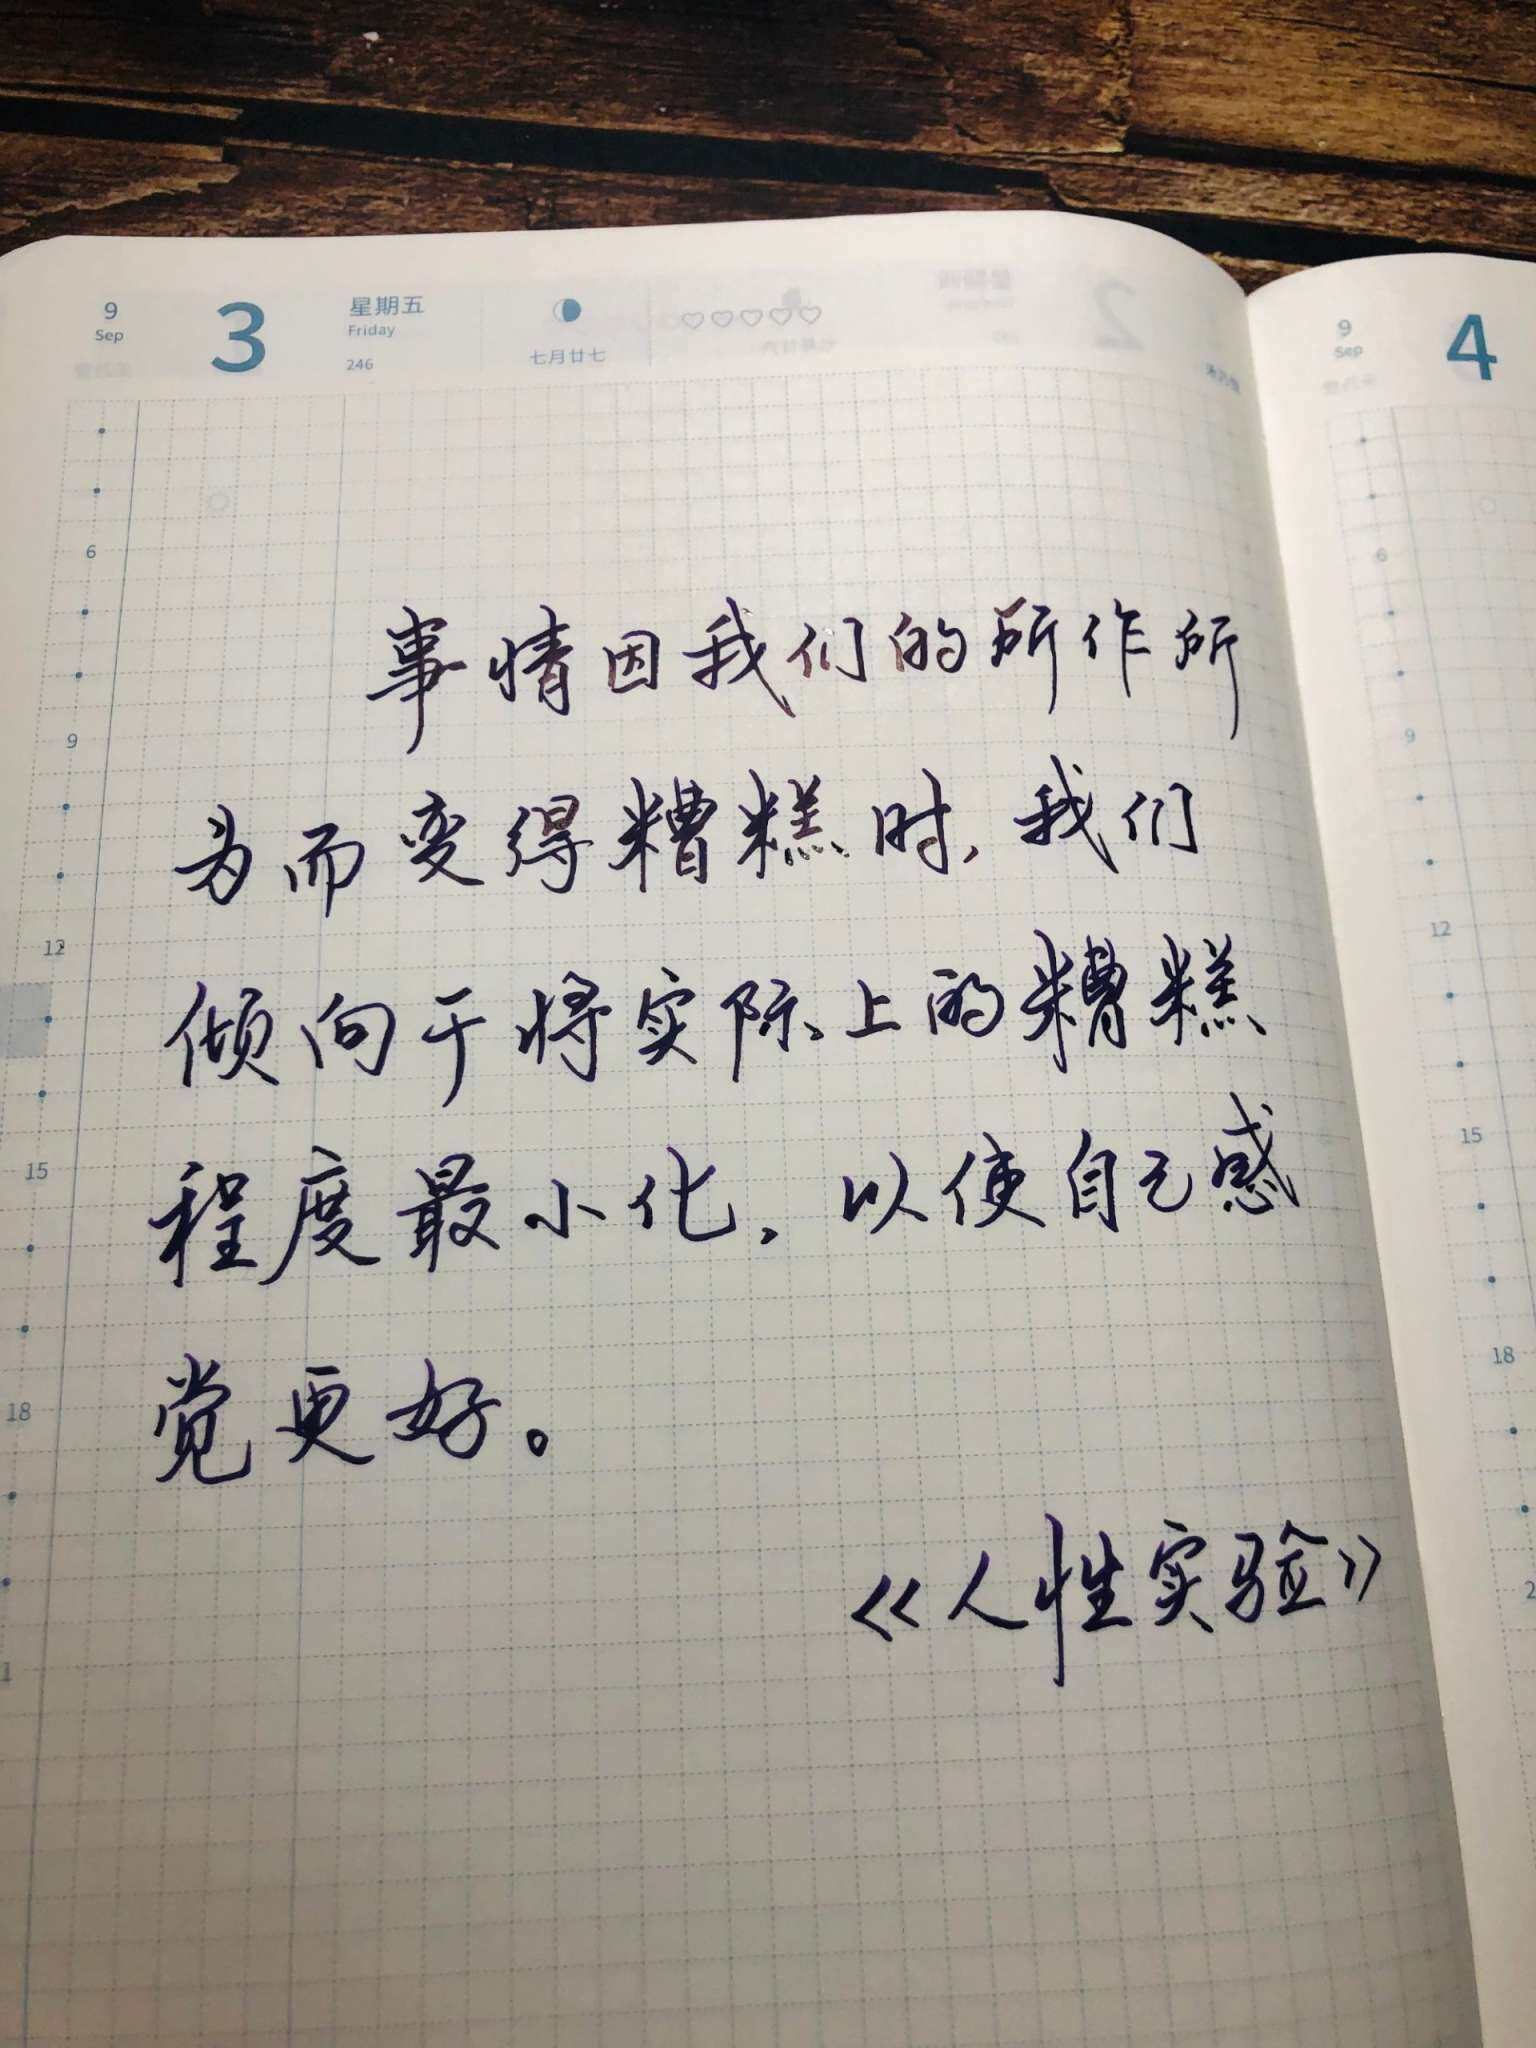 9
Sep
3
星期五
Friday
246
七月廿七
6
9
12
15
18
事情因我们的所作所
为而变得糟糕时,我们
倾向于将实际上的糟糕
程度最小化,以使自己感
觉更好。
《人性实验》
9
Sep
4
6
9
12
15
18